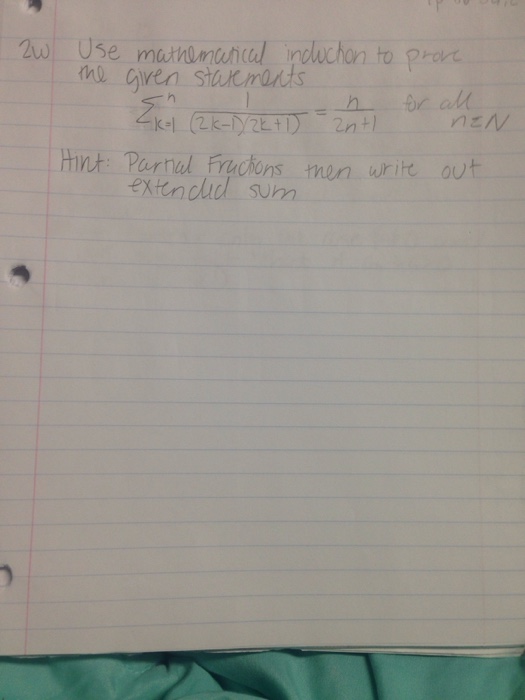 2w) Use mathematical induction to prove
the given statements
∑ₖ₌₁ⁿ 1/((2k-1)(2k+1)) = n/(2n+1) for all n∈N
Hint: Partial Fractions then write out
extended sum